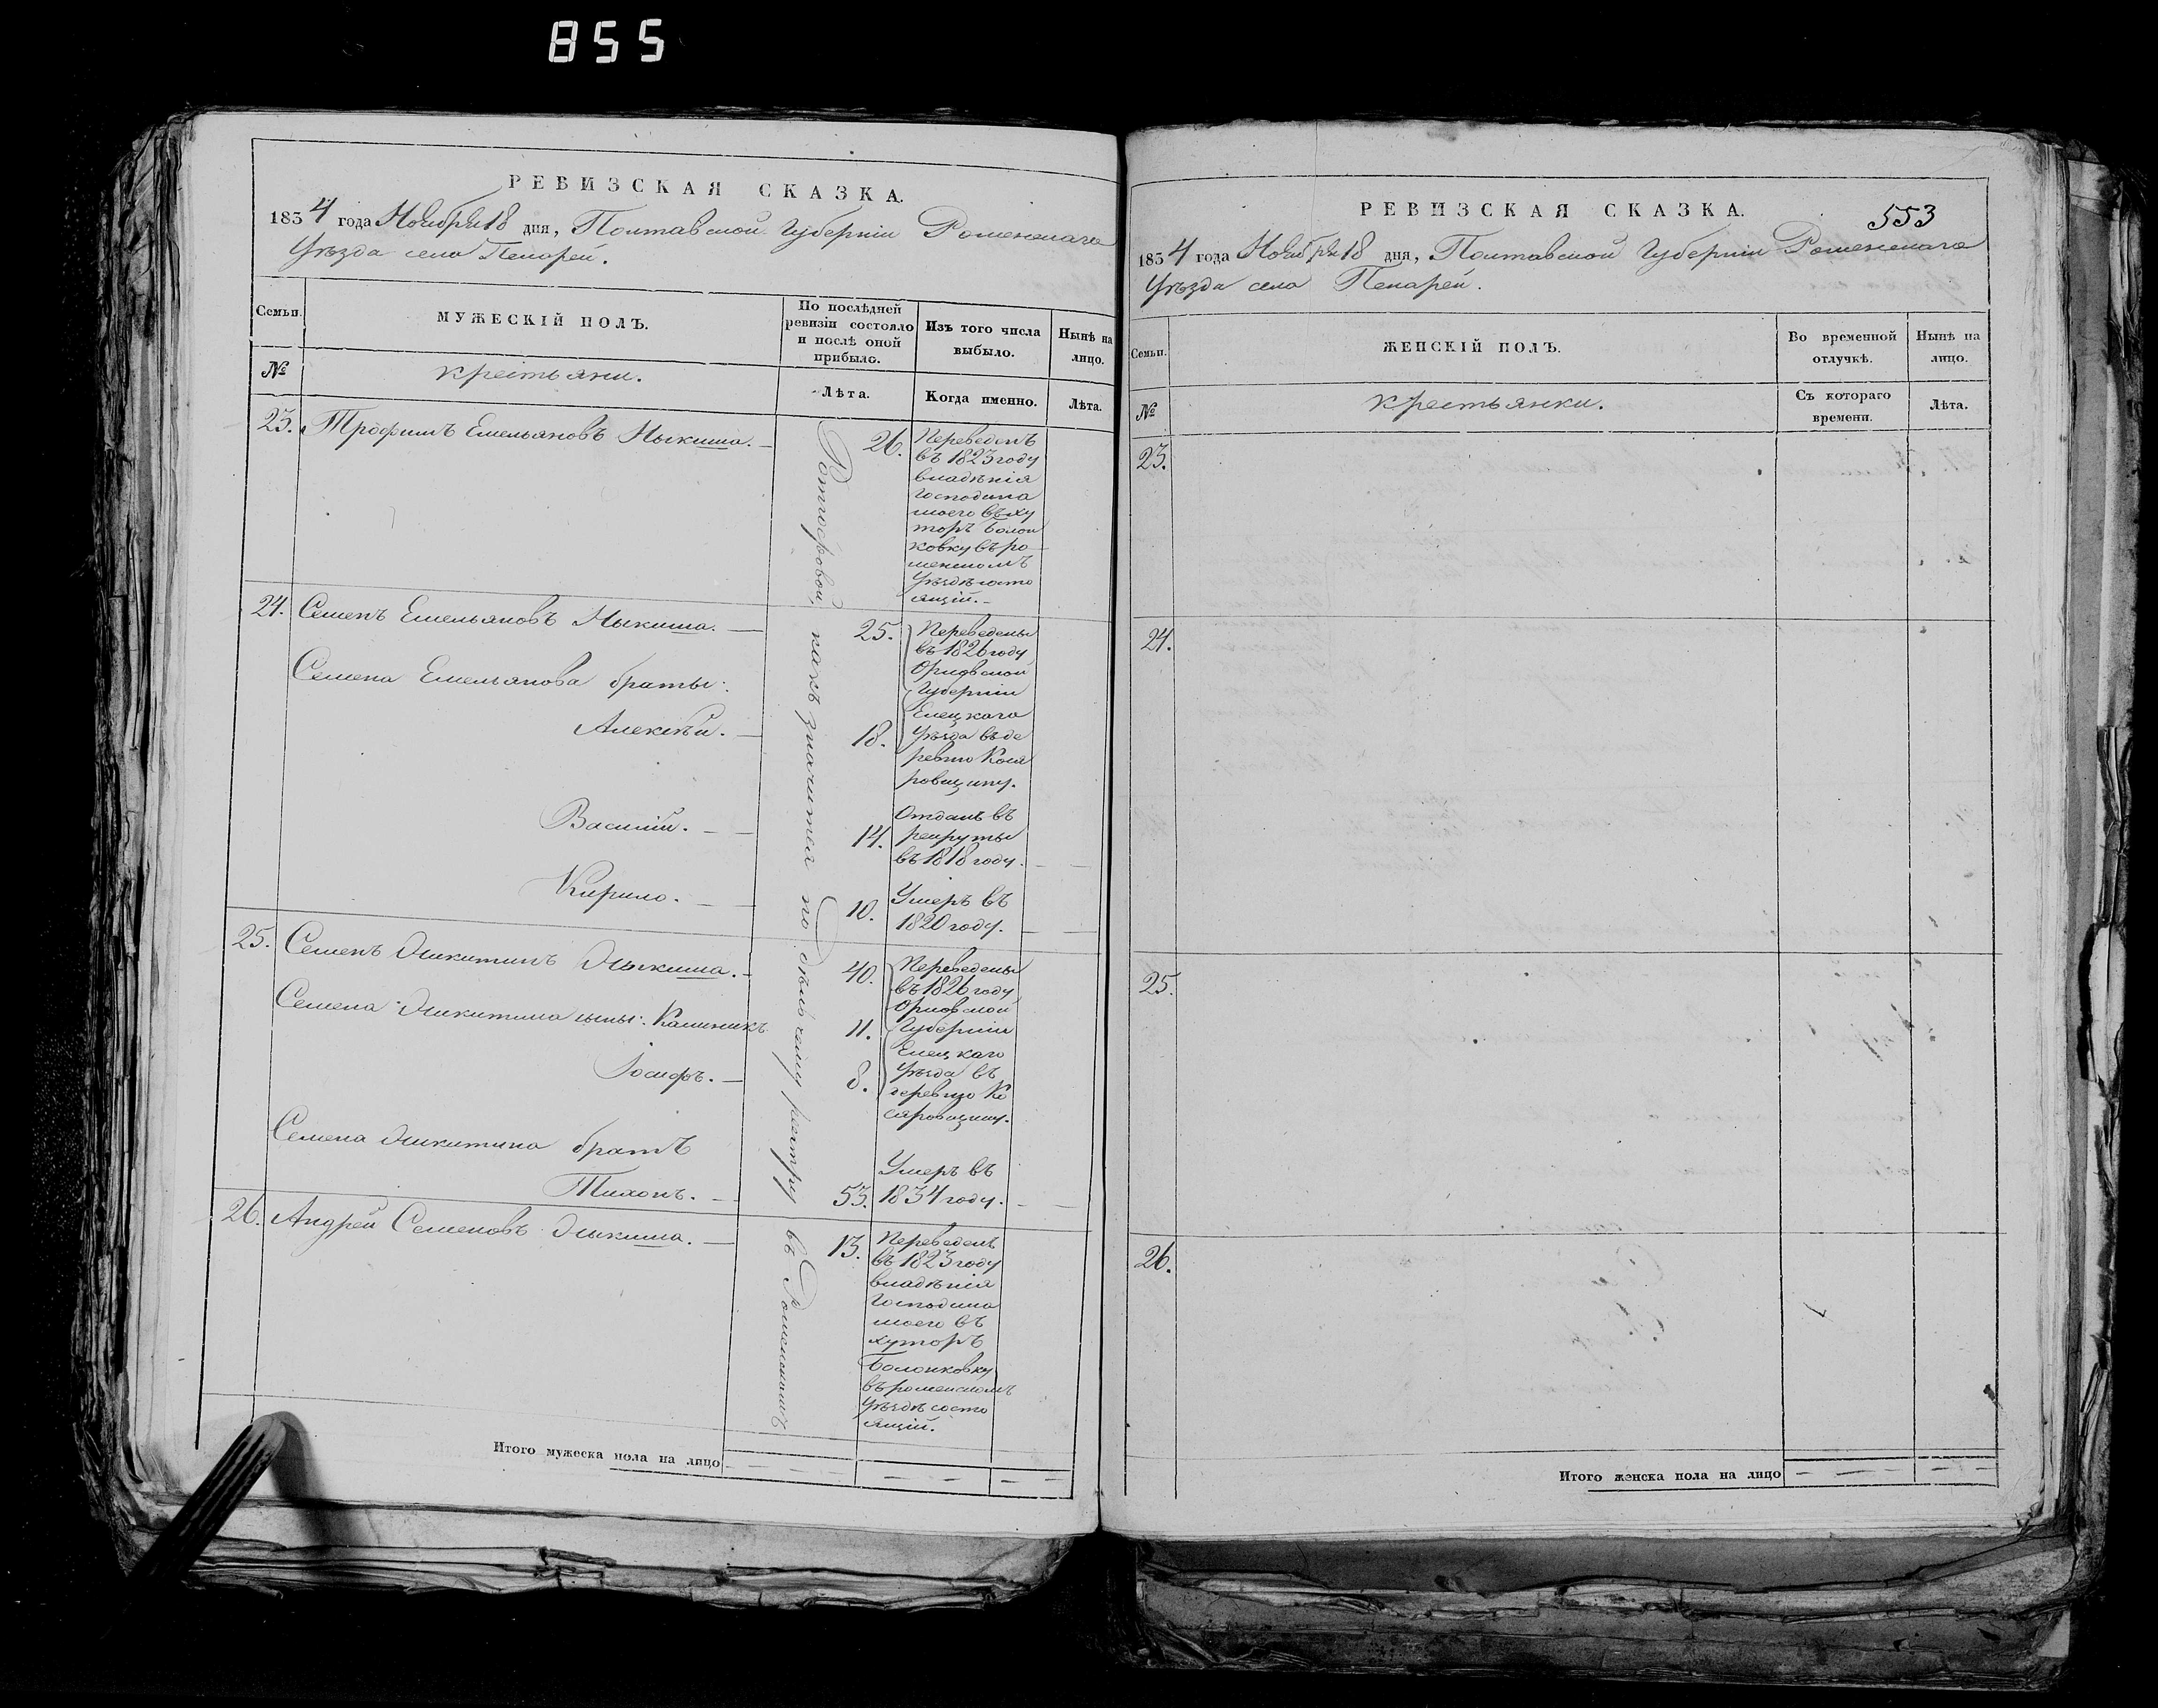 855
РЕВИЗСКАЯ СКАЗКА.
1834 года Ноября 18 дня, Полтавской Губерніи Роменскаго
Уѣзда села Пекарей.
Семьи.
МУЖЕСКІЙ ПОЛЪ.
По послѣдней ревизіи состояло и послѣ оной прибыло.
Изъ того числа выбыло.
Нынѣ на лицо.
№
крестьяни.
Лѣта.
Когда именно.
Лѣта.
Ротгофовой, какъ значится по дѣлу чему реестру въ Роменскомъ
23. Трофимъ Емельяновъ Мыкиша. 26.
Переведенъ
въ 1823 году
владѣнія
Господина
моего въ ху
торъ
ковку въ ро
менскомъ
Уѣздѣ состо
ящій.
24. Семенъ Емельяновъ Мыкиша. 25.
Переведены
въ 1826 году
Орловской
Губерніи
Елецкаго
Уѣзда въ де
ревню Кося
ровщину.
Семена Емельянова браты:
Алексѣй. 18.
Василій. 14.
Отданъ въ
рекруты
въ 1818 году.
Кирило. 10.
Умеръ въ
1820 году.
25. Семенъ Микитинъ Мыкиша. 40.
Переведены
въ 1826 году
Орловской
Губерніи
Елецкаго
Уѣзда въ
деревню Ко
сяровщину.
Семена Микитина сыны: Калиникъ 11.
Іосифъ. 8.
Семена Микитина братъ
Тихонъ. 53.
Умеръ въ
1834 году.
26. Андрей Семеновъ Мыкиша. 13.
Переведенъ
въ 1823 году
владѣнія
Господина
моего въ
хуторъ
въ роменскомъ
Уѣздѣ состо
ящій.
Итого мужеска пола на лицо
553
РЕВИЗСКАЯ СКАЗКА.
1834 года Ноября 18 дня, Полтавской Губерніи Роменскаго
Уѣзда села Пекарей.
Семьи.
ЖЕНСКІЙ ПОЛЪ.
Во временной отлучкѣ.
Нынѣ на лицо.
№
крестьянки.
Съ котораго времени.
Лѣта.
23.
24.
25.
26.
Итого женска пола на лицо